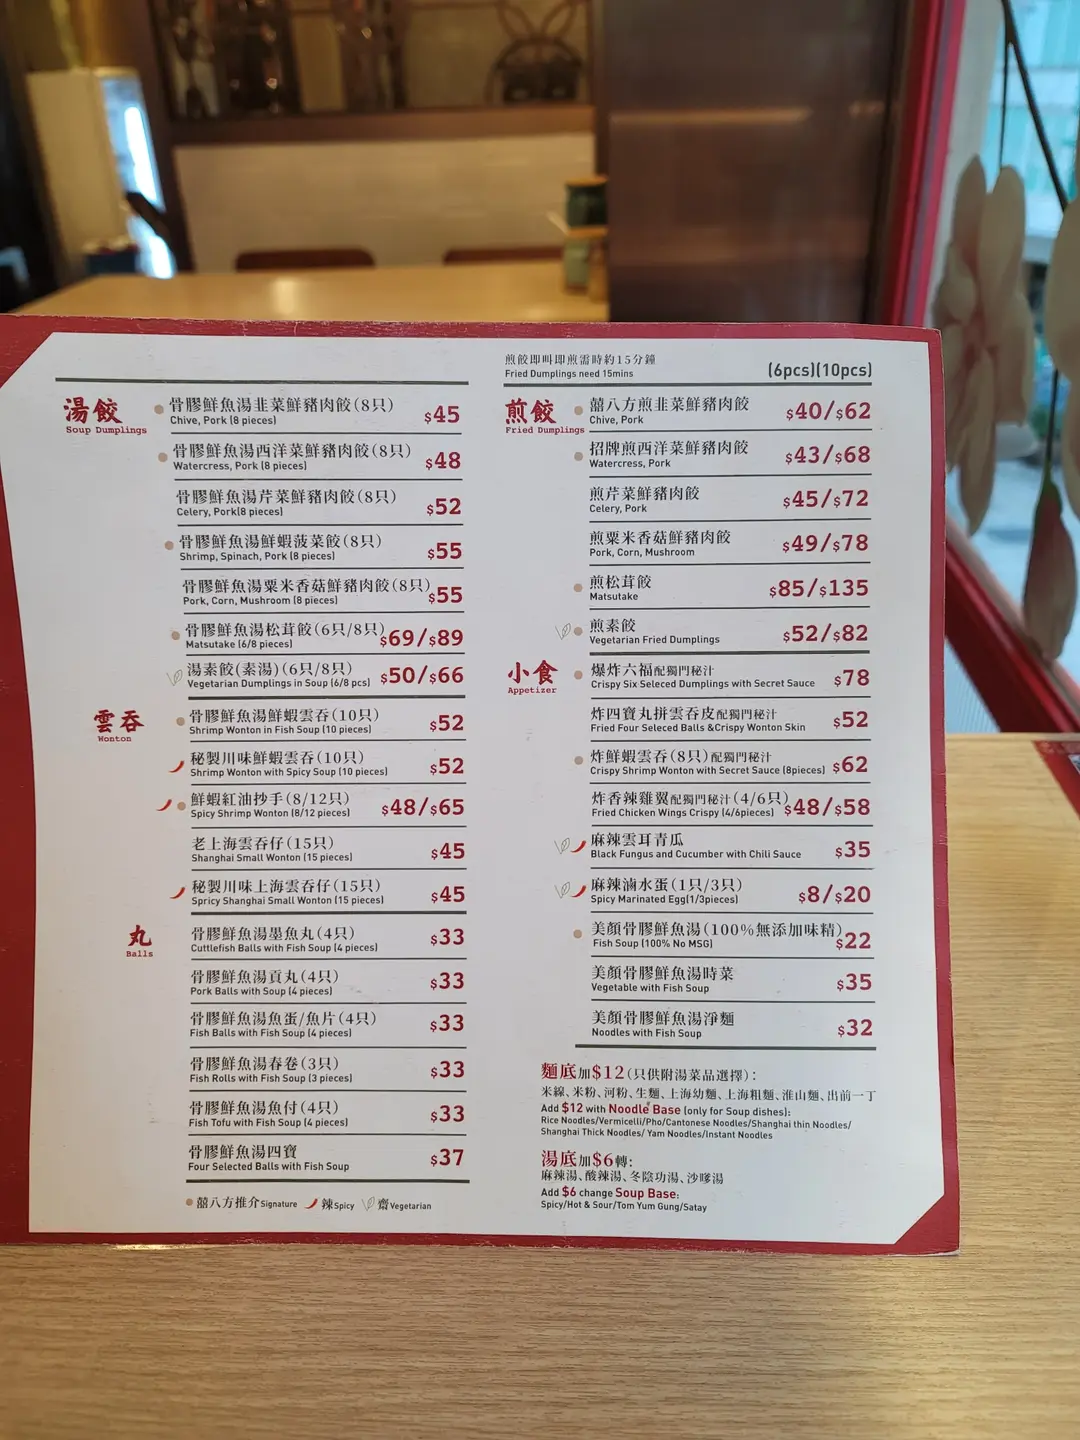 湯餃
Soup Dumplings
骨膠鮮魚湯韭菜鮮豬肉餃(8只)
Chive, Pork (8 pieces)
$45
骨膠鮮魚湯西洋菜鮮豬肉餃(8只)
Watercress, Pork (8 pieces)
$48
骨膠鮮魚湯芹菜鮮豬肉餃(8只)
Celery, Pork(8 pieces)
$52
骨膠鮮魚湯鮮蝦菠菜餃(8只)
Shrimp, Spinach, Pork (8 pieces)
$55
骨膠鮮魚湯粟米香菇鮮豬肉餃(8只)
Pork, Corn, Mushroom (8 pieces)
$55
骨膠鮮魚湯松茸餃(6只/8只)
Matsutake (6/8 pieces)
$69/$89
湯素餃(素湯)(6只/8只)
Vegetarian Dumplings in Soup (6/8 pcs)
$50/$66
雲吞
Wonton
骨膠鮮魚湯鮮蝦雲吞(10只)
Shrimp Wonton in Fish Soup (10 pieces)
$52
秘製川味鮮蝦雲吞(10只)
Shrimp Wonton with Spicy Soup (10 pieces)
$52
鮮蝦紅油抄手(8/12只)
Spicy Shrimp Wonton (8/12 pieces)
$48/$65
老上海雲吞仔(15只)
Shanghai Small Wonton (15 pieces)
$45
秘製川味上海雲吞仔(15只)
Spricy Shanghai Small Wonton (15 pieces)
$45
丸
Balls
骨膠鮮魚湯墨魚丸(4只)
Cuttlefish Balls with Fish Soup (4 pieces)
$33
骨膠鮮魚湯貢丸(4只)
Pork Balls with Soup (4 pieces)
$33
骨膠鮮魚湯魚蛋/魚片(4只)
Fish Balls with Fish Soup (4 pieces)
$33
骨膠鮮魚湯春卷(3只)
Fish Rolls with Fish Soup (3 pieces)
$33
骨膠鮮魚湯魚付(4只)
Fish Tofu with Fish Soup (4 pieces)
$33
骨膠鮮魚湯四寶
Four Selected Balls with Fish Soup
$37
囍八方推介Signature 辣Spicy 齋Vegetarian
煎餃即叫即煎需時約15分鐘
Fried Dumplings need 15mins
(6pcs)(10pcs)
煎餃
Fried Dumplings
囍八方煎韭菜鮮豬肉餃
Chive, Pork
$40/$62
招牌煎西洋菜鮮豬肉餃
Watercress, Pork
$43/$68
煎芹菜鮮豬肉餃
Celery, Pork
$45/$72
煎粟米香菇鮮豬肉餃
Pork, Corn, Mushroom
$49/$78
煎松茸餃
Matsutake
$85/$135
煎素餃
Vegetarian Fried Dumplings
$52/$82
小食
Appetizer
爆炸六福配獨門秘汁
Crispy Six Seleced Dumplings with Secret Sauce
$78
炸四寶丸拼雲吞皮配獨門秘汁
Fried Four Seleced Balls &Crispy Wonton Skin
$52
炸鮮蝦雲吞(8只)配獨門秘汁
Crispy Shrimp Wonton with Secret Sauce (8pieces)
$62
炸香辣雞翼配獨門秘汁(4/6只)
Fried Chicken Wings Crispy (4/6pieces)
$48/$58
麻辣雲耳青瓜
Black Fungus and Cucumber with Chili Sauce
$35
麻辣滷水蛋(1只/3只)
Spicy Marinated Egg(1/3pieces)
$8/$20
美顏骨膠鮮魚湯(100%無添加味精)
Fish Soup (100% No MSG)
$22
美顏骨膠鮮魚湯時菜
Vegetable with Fish Soup
$35
美顏骨膠鮮魚湯淨麵
Noodles with Fish Soup
$32
麵底加$12(只供附湯菜品選擇):
米線、米粉、河粉、生麵、上海幼麵、上海粗麵、淮山麵、出前一丁
Add $12 with Noodle Base (only for Soup dishes):
Rice Noodles/Vermicelli/Pho/Cantonese Noodles/Shanghai thin Noodles/
Shanghai Thick Noodles/ Yam Noodles/Instant Noodles
湯底加$6轉:
麻辣湯、酸辣湯、冬陰功湯、沙嗲湯
Add $6 change Soup Base:
Spicy/Hot & Sour/Tom Yum Gung/Satay